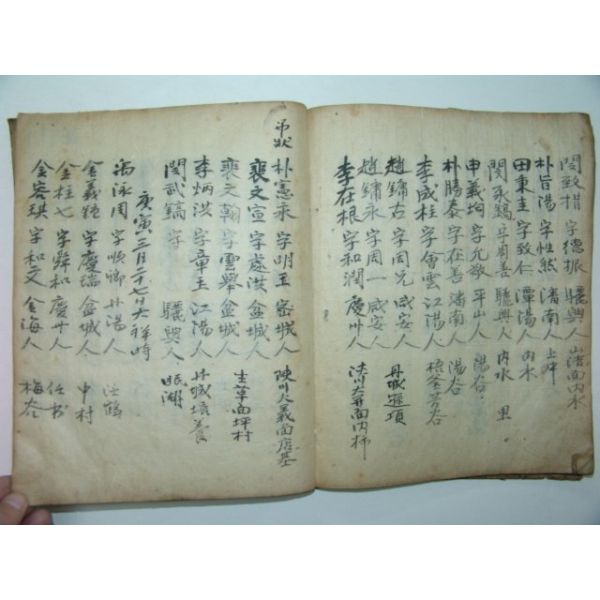 閔致指 字德振 驪興人 山淸面內水
朴旨陽 字性然 濟南人 上坪
田東圭 字致仁 潭陽人 內水
閔承鎬 字周善 驪興人 內水 里
申義均 字允敬 平山人 陽谷
朴勝泰 字在善 濟南人 陽谷
李成桂 字會雲 江陽人
趙鏞古 字周兄 咸安人 丹城選項
趙鏞永 字周一 咸安人
李在根 字和潤 慶州人 內柿
吊狀
朴憲永 字明玉 密城人 陜川大義面店基
裵文宣 字處洪 盆城人
裵文翰 字雲擧 盆城人 生草面坪村
李炳洪 字章玉 江陽人 丹城培養
閔武鎬 字 驪興人 眠湖
庚寅三月二十七日大祥時
馮泳周 字順卿 丹陽人 法鶴
金義 字慶瑞 盆城人 中村
金柱七 字舜和 慶州人
金容琪 字和文 金海人 梅谷